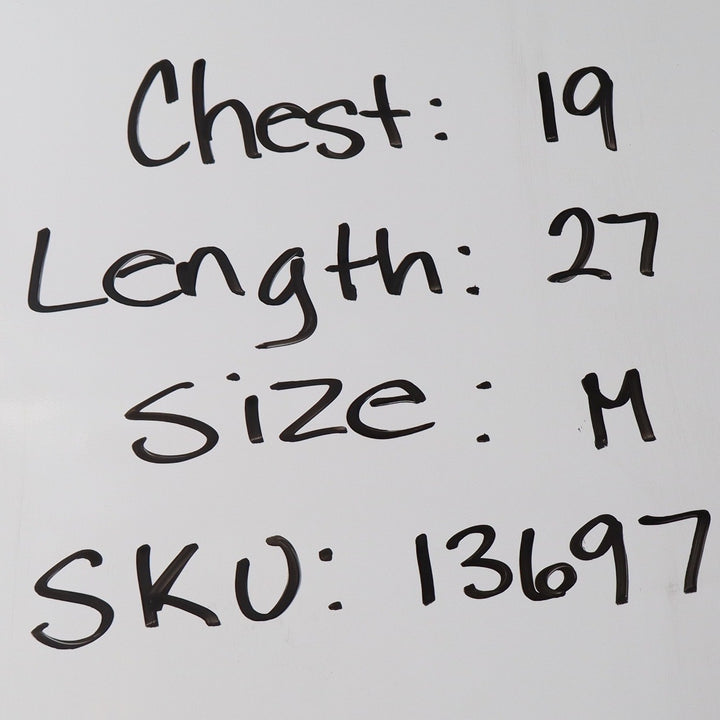 Chest: 19
Length: 27
Size: M
SKU: 13697